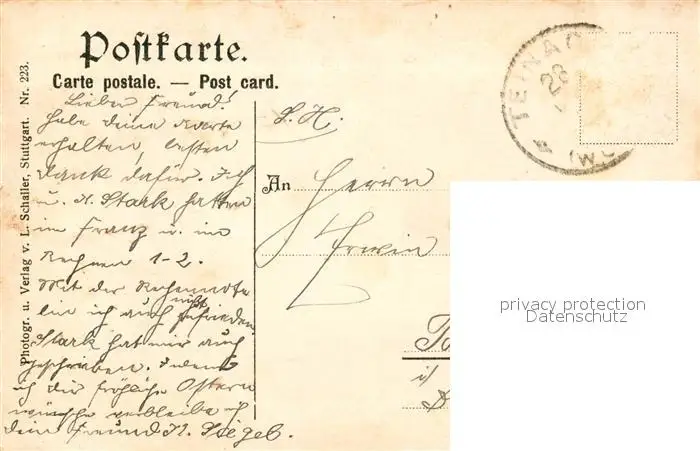 Postkarte.
Carte postale. — Post card.
Photogr. u. Verlag v. L. Schaller, Stuttgart. Nr. 223.
Lieber Freund!
habe deine Karte
erhalten, besten
Dank dafür. Ich
u. H. Stark hatten
im Franz u. im
Rechnen 1-2.
Mit der Rechennote
bin ich auch nicht zufrieden
Stark hat mir auch
geschrieben. Indem
ich dir fröhliche Ostern
wünsche verbleibe ich
dein Freund H. Siegel.
S. H.
An Herrn
Erwin
i/
TEINAC
28
(WÜ
privacy protection
Datenschutz